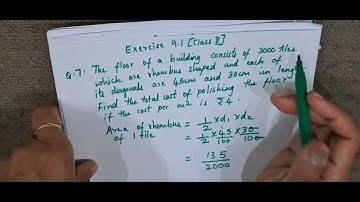 Exercise 9.1 [Class 8]
Q.7. The floor of a building consists of 3000 tiles
which are rhombus shaped and each of
its diagonals are 45cm and 30cm in length
Find the total cost of polishing the floor
if the cost per m² is ₹4.
Area of rhombus = 1/2 × d1 × d2
of 1 tile = 1/2 × 45/100 × 30/100
= 135/2000